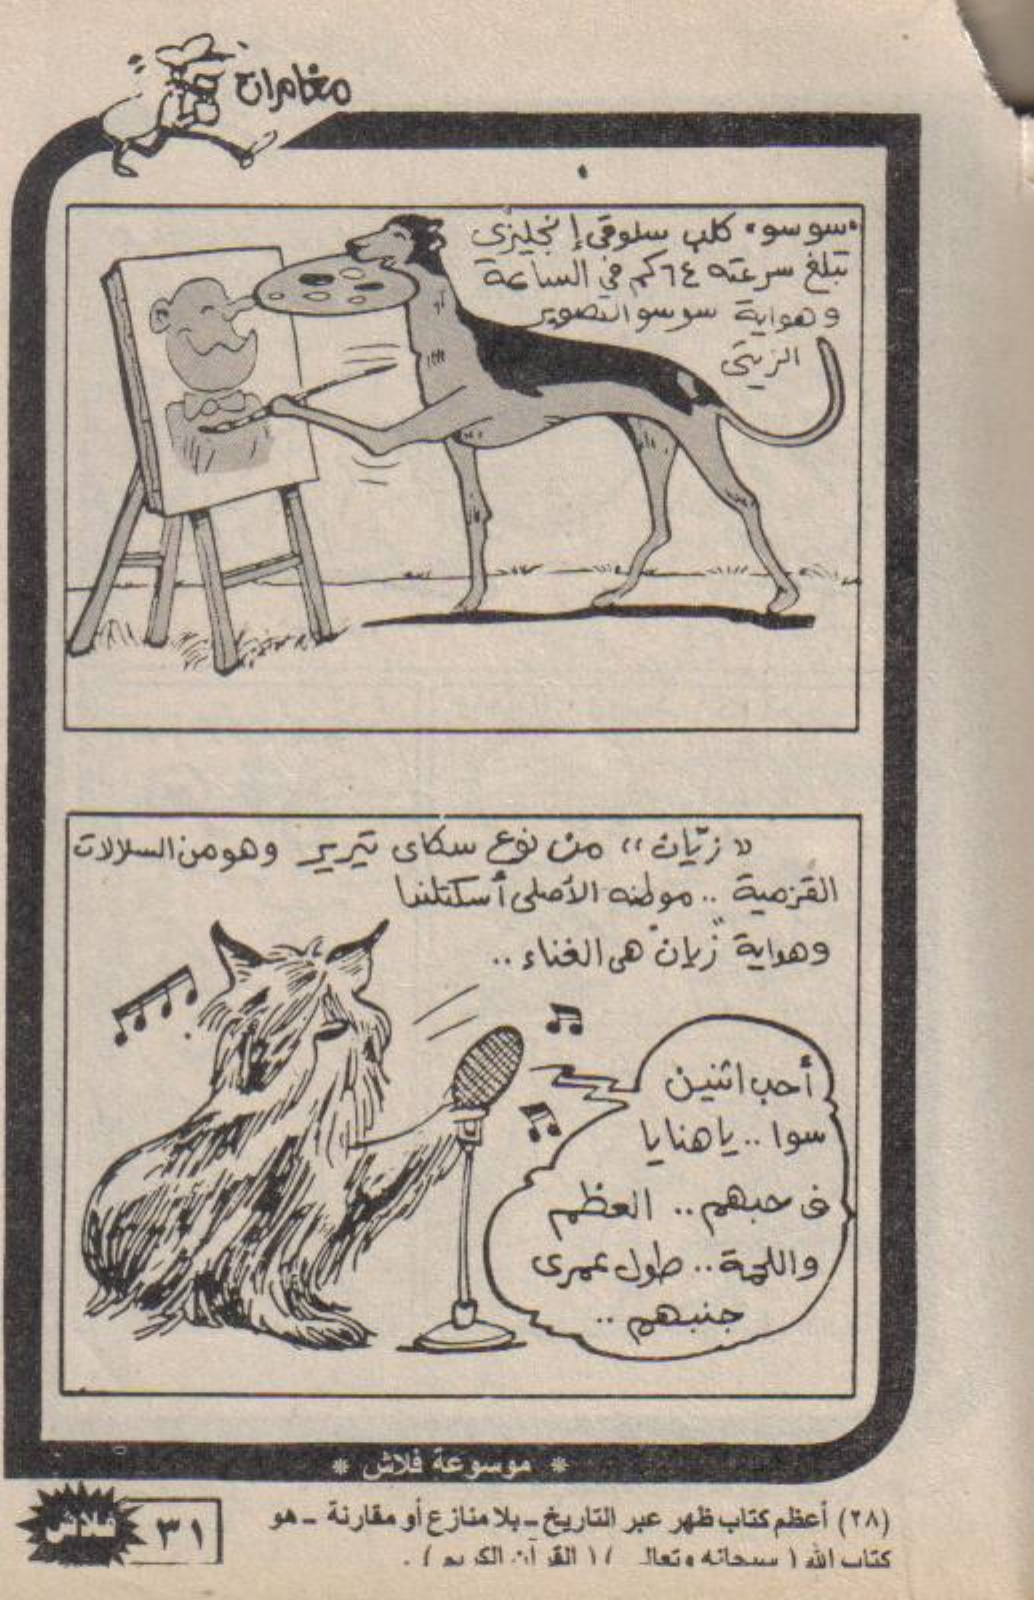 مغامرات
"سوسو" كلب سلوقى إنجليزى
تبلغ سرعته ٦٤ كم فى الساعة
وهواية سوسو التصوير
الزيتى
«زيّان» من نوع سكاى تيرير وهو من السلالات
القزمية .. موطنه الأصلى أسكتلندا
وهواية "زيان" هى الغناء ..
أحب اثنين
سوا .. يا هنايا
فى حبهم .. العظم
واللحمة .. طول عمرى
جنبهم ..
* موسوعة فلاش *
(٢٨) أعظم كتاب ظهر عبر التاريخ ــ بلا منازع أو مقارنة ــ هو
كتاب الله ( سبحانه وتعالى ) ( القرآن الكريم ) .
٣١
فلاش